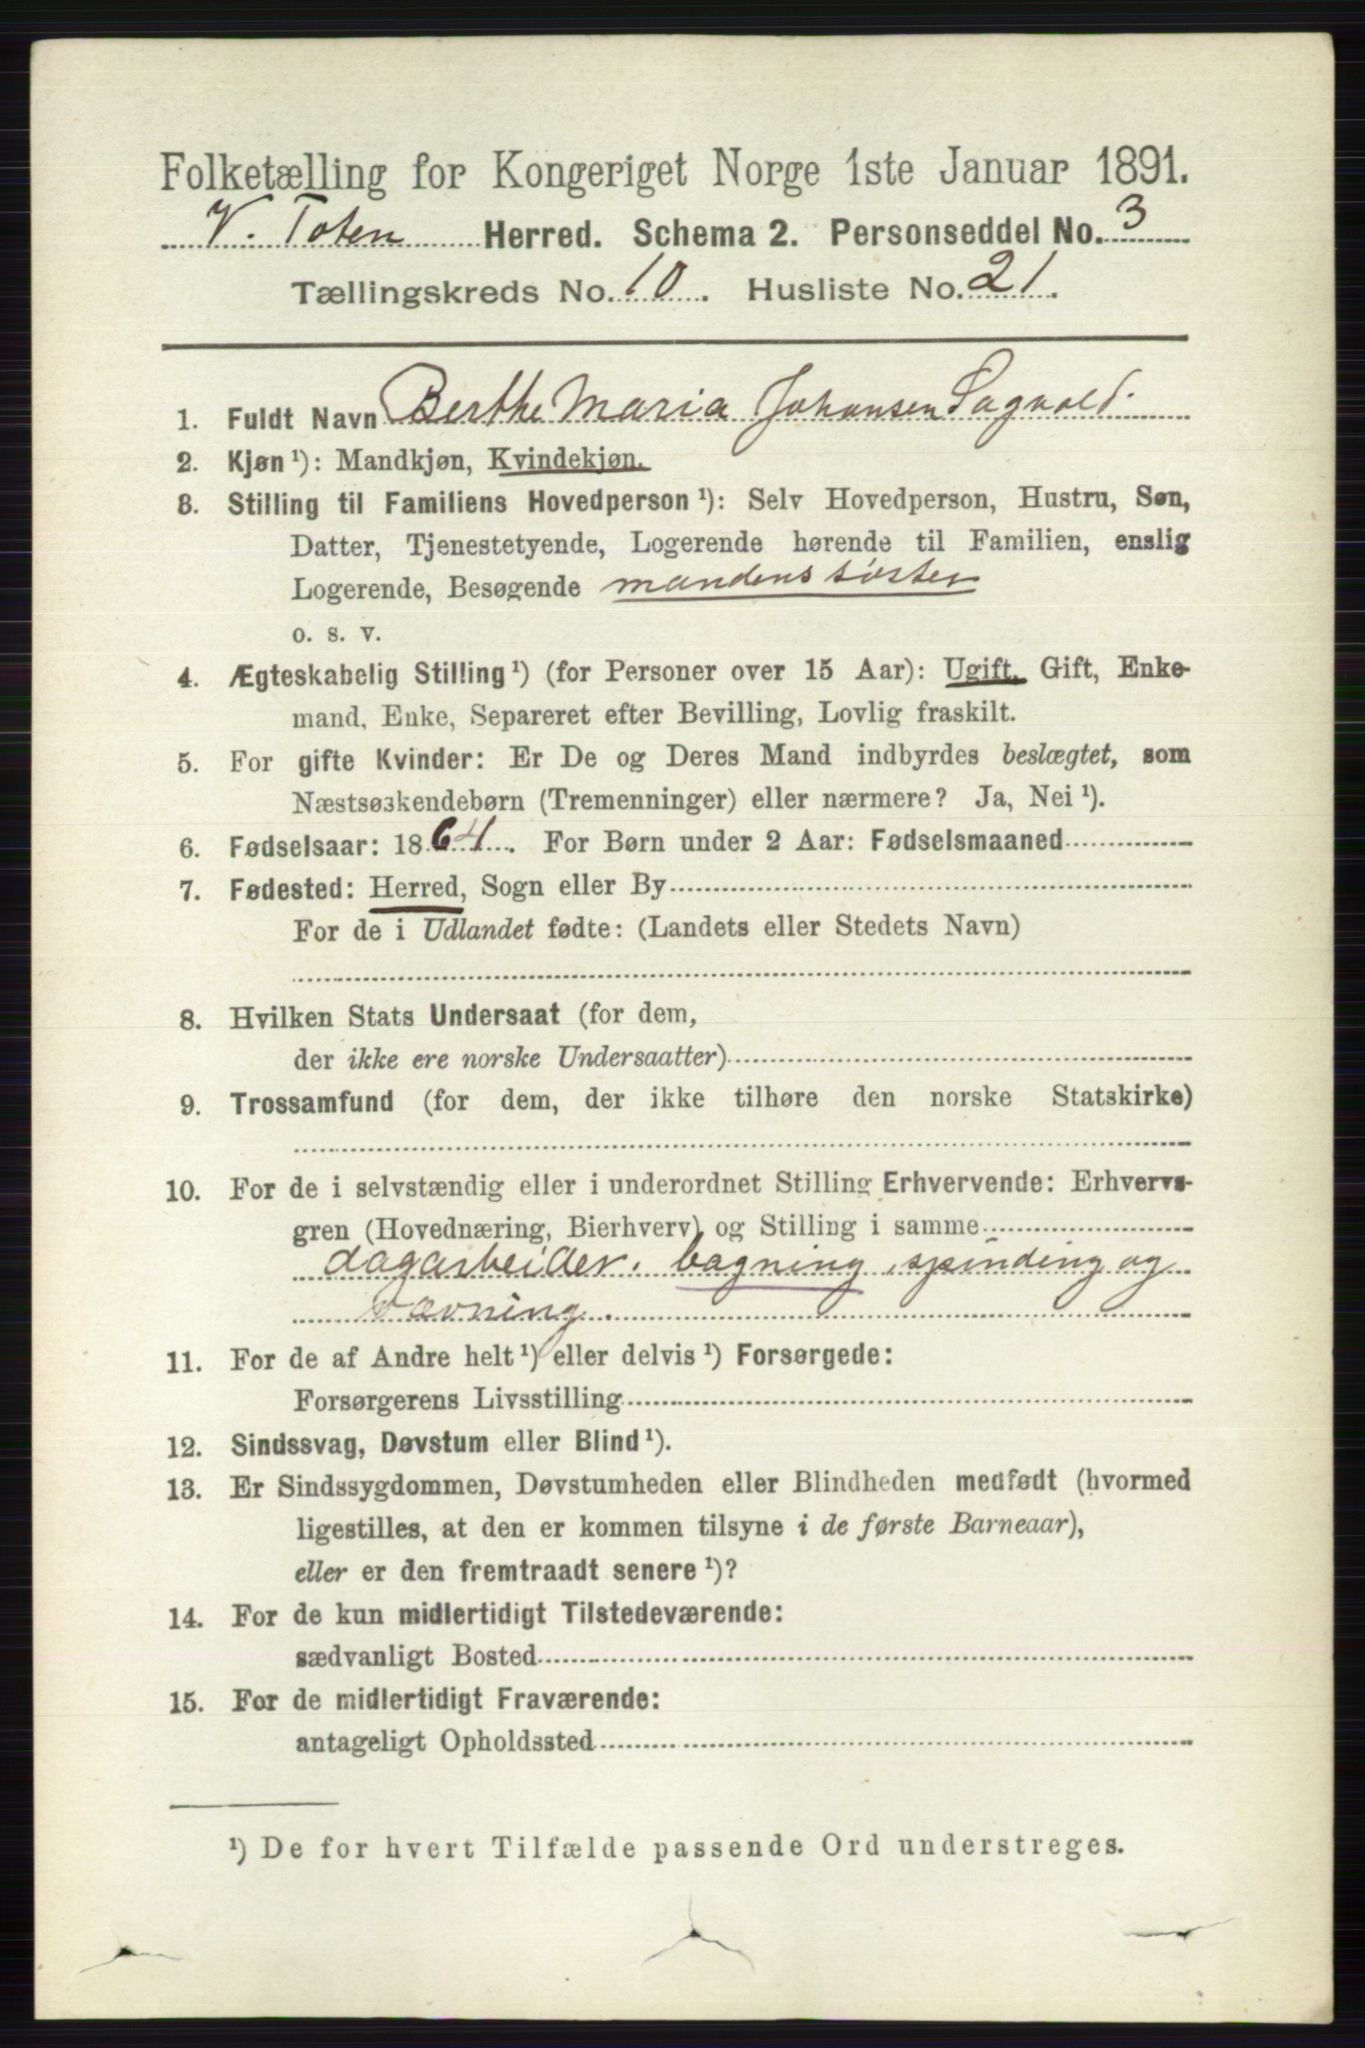 Folketælling for Kongeriget Norge 1ste Januar 1891.
V. Toten Herred. Schema 2. Personseddel No. 3
Tællingskreds No. 10. Husliste No. 21.
1. Fuldt Navn Berthe Maria Johansen Sagvold.
2. Kjøn ¹): Mandkjøn, Kvindekjøn.
3. Stilling til Familiens Hovedperson ¹): Selv Hovedperson, Hustru, Søn,
Datter, Tjenestetyende, Logerende hørende til Familien, enslig
Logerende, Besøgende mandens søster
o. s. v.
4. Ægteskabelig Stilling ¹) (for Personer over 15 Aar): Ugift, Gift, Enke-
mand, Enke, Separeret efter Bevilling, Lovlig fraskilt.
5. For gifte Kvinder: Er De og Deres Mand indbyrdes beslægtet, som
Næstsøskendebørn (Tremenninger) eller nærmere? Ja, Nei ¹).
6. Fødselsaar: 1864. For Børn under 2 Aar: Fødselsmaaned
7. Fødested: Herred, Sogn eller By
For de i Udlandet fødte: (Landets eller Stedets Navn)
8. Hvilken Stats Undersaat (for dem,
der ikke ere norske Undersaatter)
9. Trossamfund (for dem, der ikke tilhøre den norske Statskirke)
10. For de i selvstændig eller i underordnet Stilling Erhvervende: Erhvervs-
gren (Hovednæring, Bierhverv) og Stilling i samme
dagarbeider. bagning, spinding og
vævning.
11. For de af Andre helt ¹) eller delvis ¹) Forsørgede:
Forsørgerens Livsstilling
12. Sindssvag, Døvstum eller Blind ¹).
13. Er Sindssygdommen, Døvstumheden eller Blindheden medfødt (hvormed
ligestilles, at den er kommen tilsyne i de første Barneaar),
eller er den fremtraadt senere ¹)?
14. For de kun midlertidigt Tilstedeværende:
sædvanligt Bosted
15. For de midlertidigt Fraværende:
antageligt Opholdssted
¹) De for hvert Tilfælde passende Ord understreges.